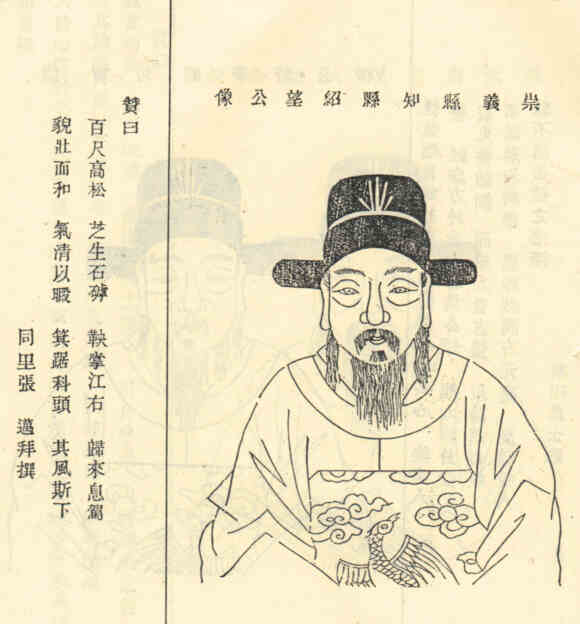 崇義縣知縣紹望公像
贊曰
百尺高松 芝生石罅 鞅掌江右 歸來息駕
貌壯而和 氣清以暇 箕踞科頭 其風斯下
同里張 邁拜撰